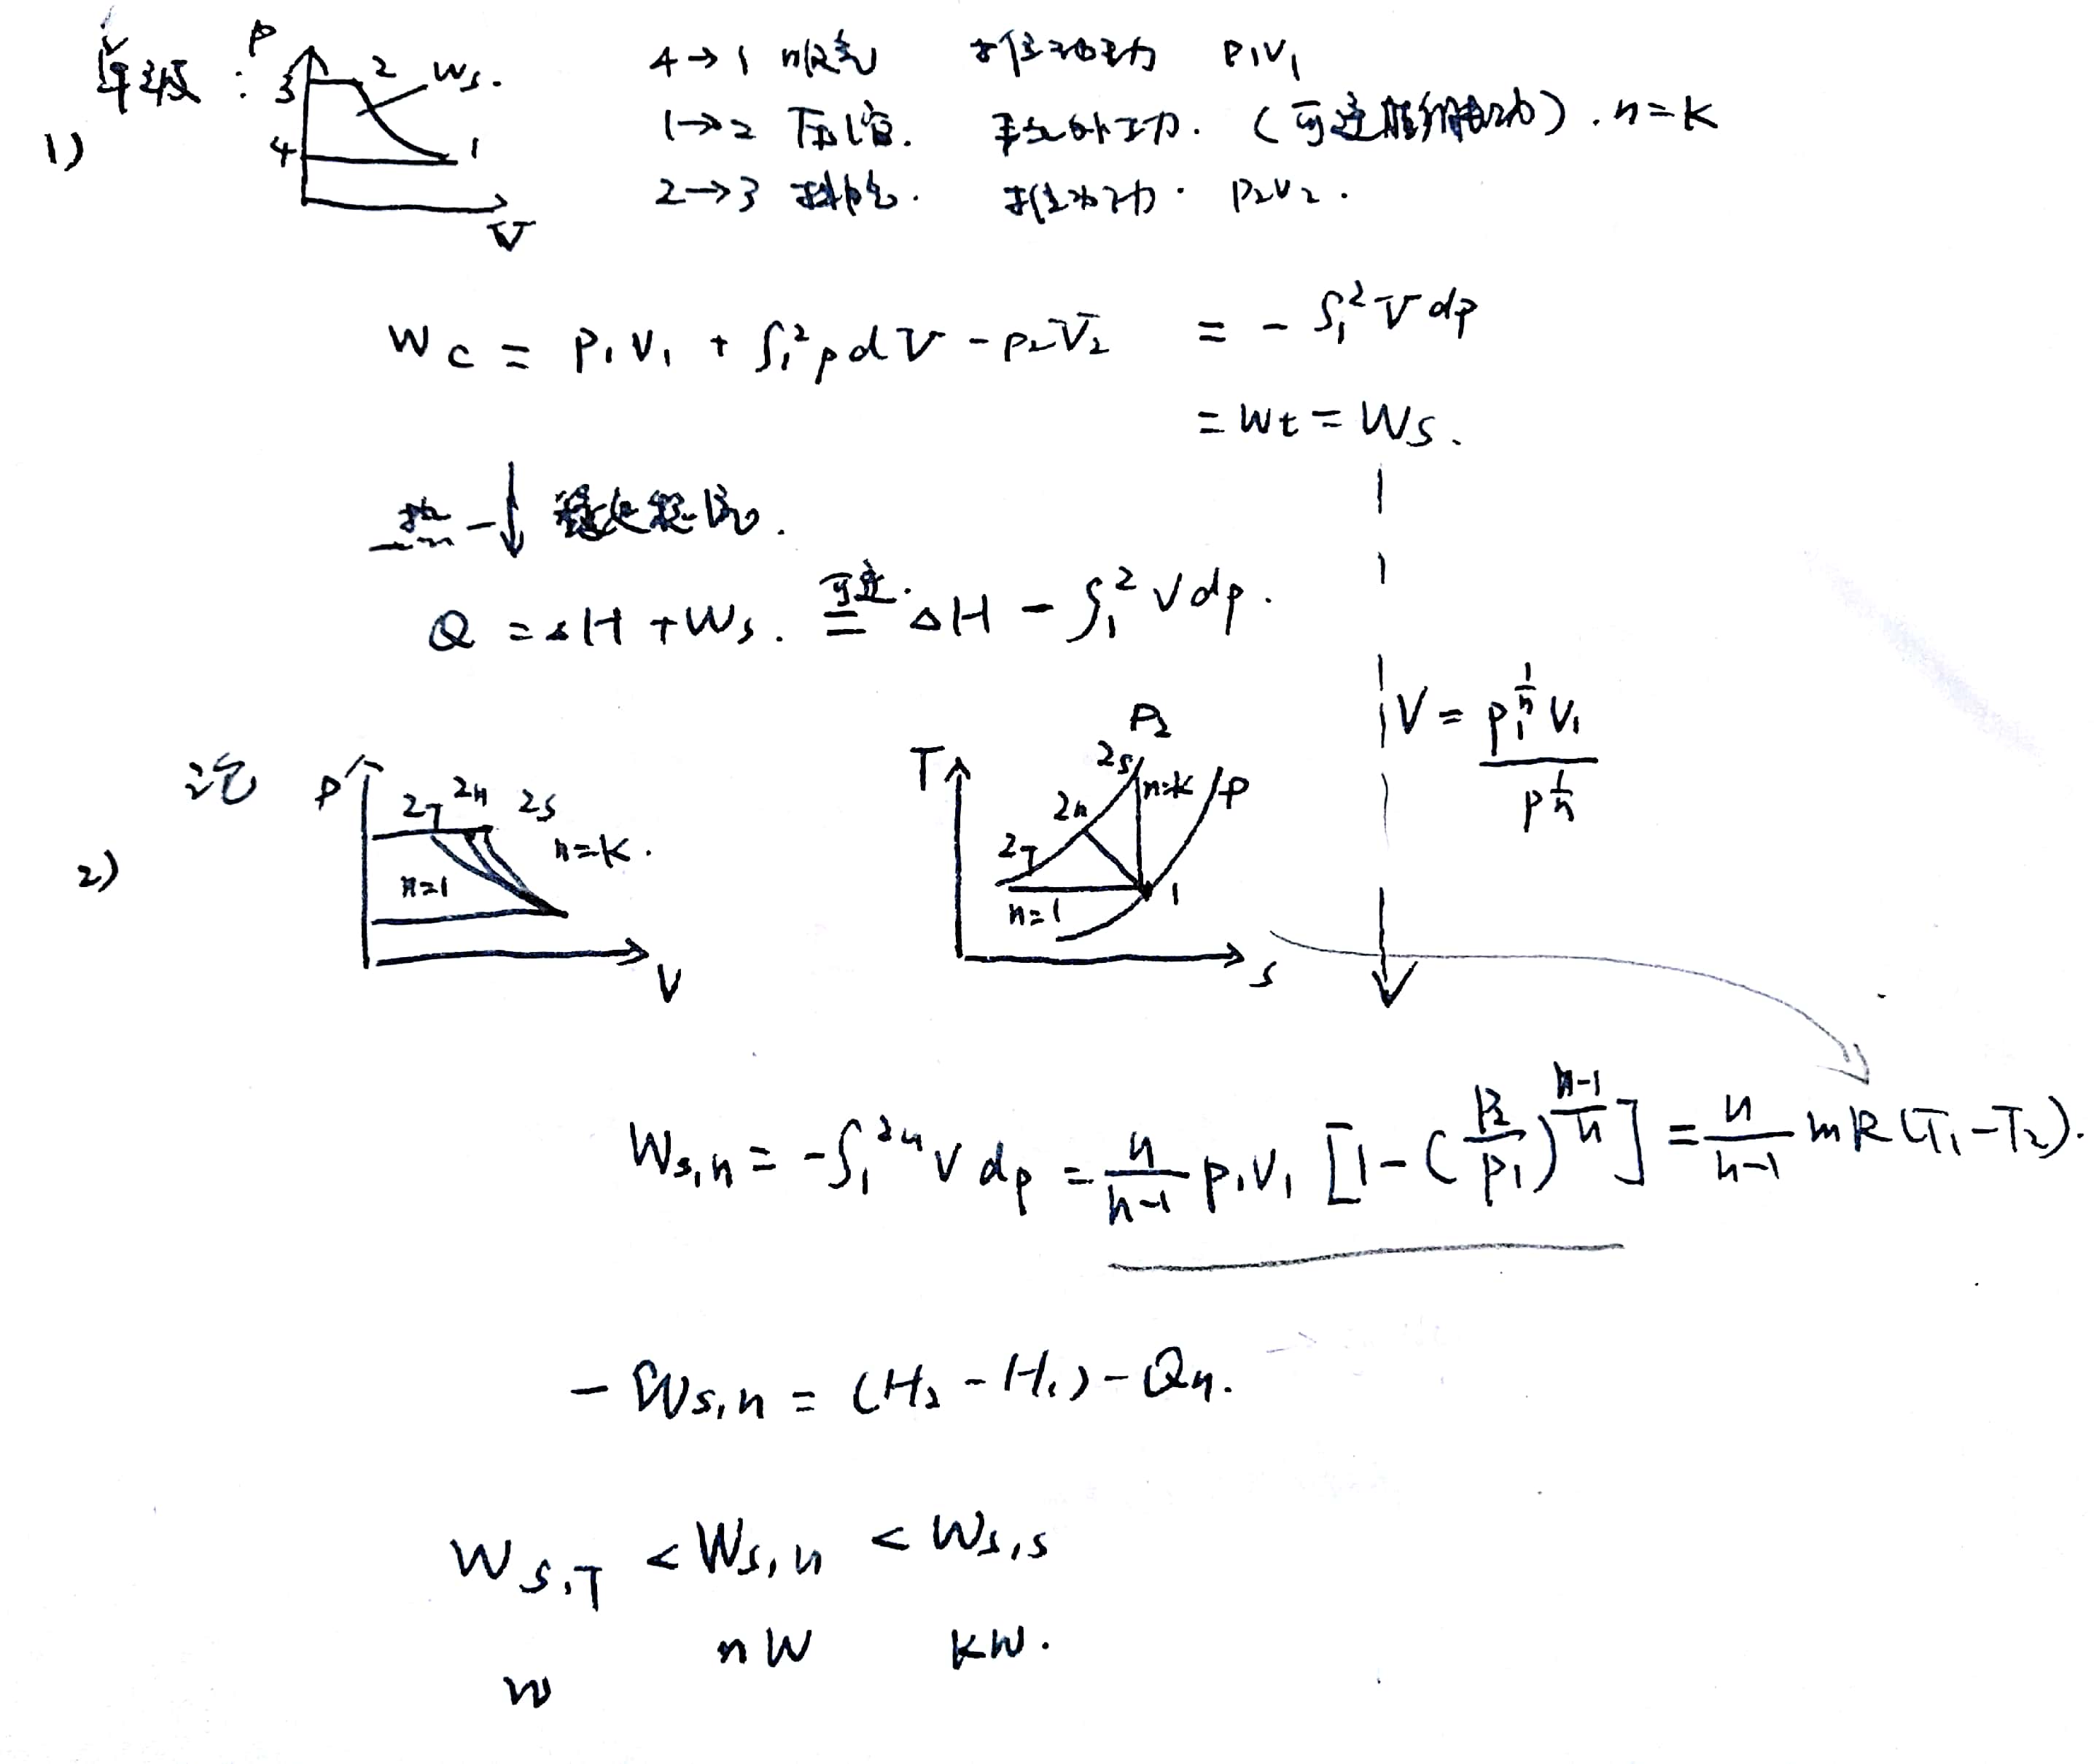 单级:
P 3 2 Ws. 4 1 V
1)
4→1 吸气 推动功 P1V1
1→2 压缩. (可逆) . n=K
2→3 排气. 推动功. P2V2.
Wc = P1V1 + ∫₁² p dV - P2V2 = - ∫₁² V dp
= Wt = Ws.
热一↓ 稳定
Q = ΔH + Ws. 可逆. = ΔH - ∫₁² V dp.
V = p₁^(1/n) V₁ / p^(1/n)
P 2T 2n 2s n=K. n=1 V
T P2 2s n=K P 2n 2T n=1 1 s
2)
Ws,n = -∫₁²ⁿ V dp = n/(n-1) P1V1 [1-(P2/P1)^((n-1)/n)] = n/(n-1) mR(T1-T2).
- Ws,n = (H2 - H1) - Qn.
Ws,T < Ws,n < Ws,s
nW KW.
W